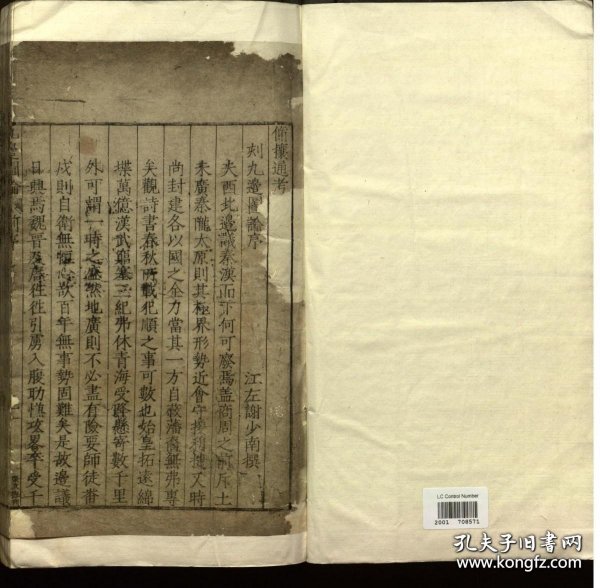 修攘通考
刻九邊圖論序
江左謝少南撰
夫西北邊議秦漢而下何可廢焉蓋商周之前斥土
未廣秦隴太原則其極界形勢近會守操稍捷又時
尚封建各以國之全力當其一方自
無弗專
矣觀詩書春秋所載犯順之事可數也始皇拓遠綿
堞萬億漢武窮塞三紀弗休青海受降懸寄數千里
外可謂一時之
然地廣則不必盡有險要師徒番
戍則自衛無
心欲百年無事勢固難矣是故邊議
日興焉魏晉及唐往往引虜入腹助
攻畧卒受千
LC Control Number
2001 708571
孔夫子旧书网
www.kongfz.com